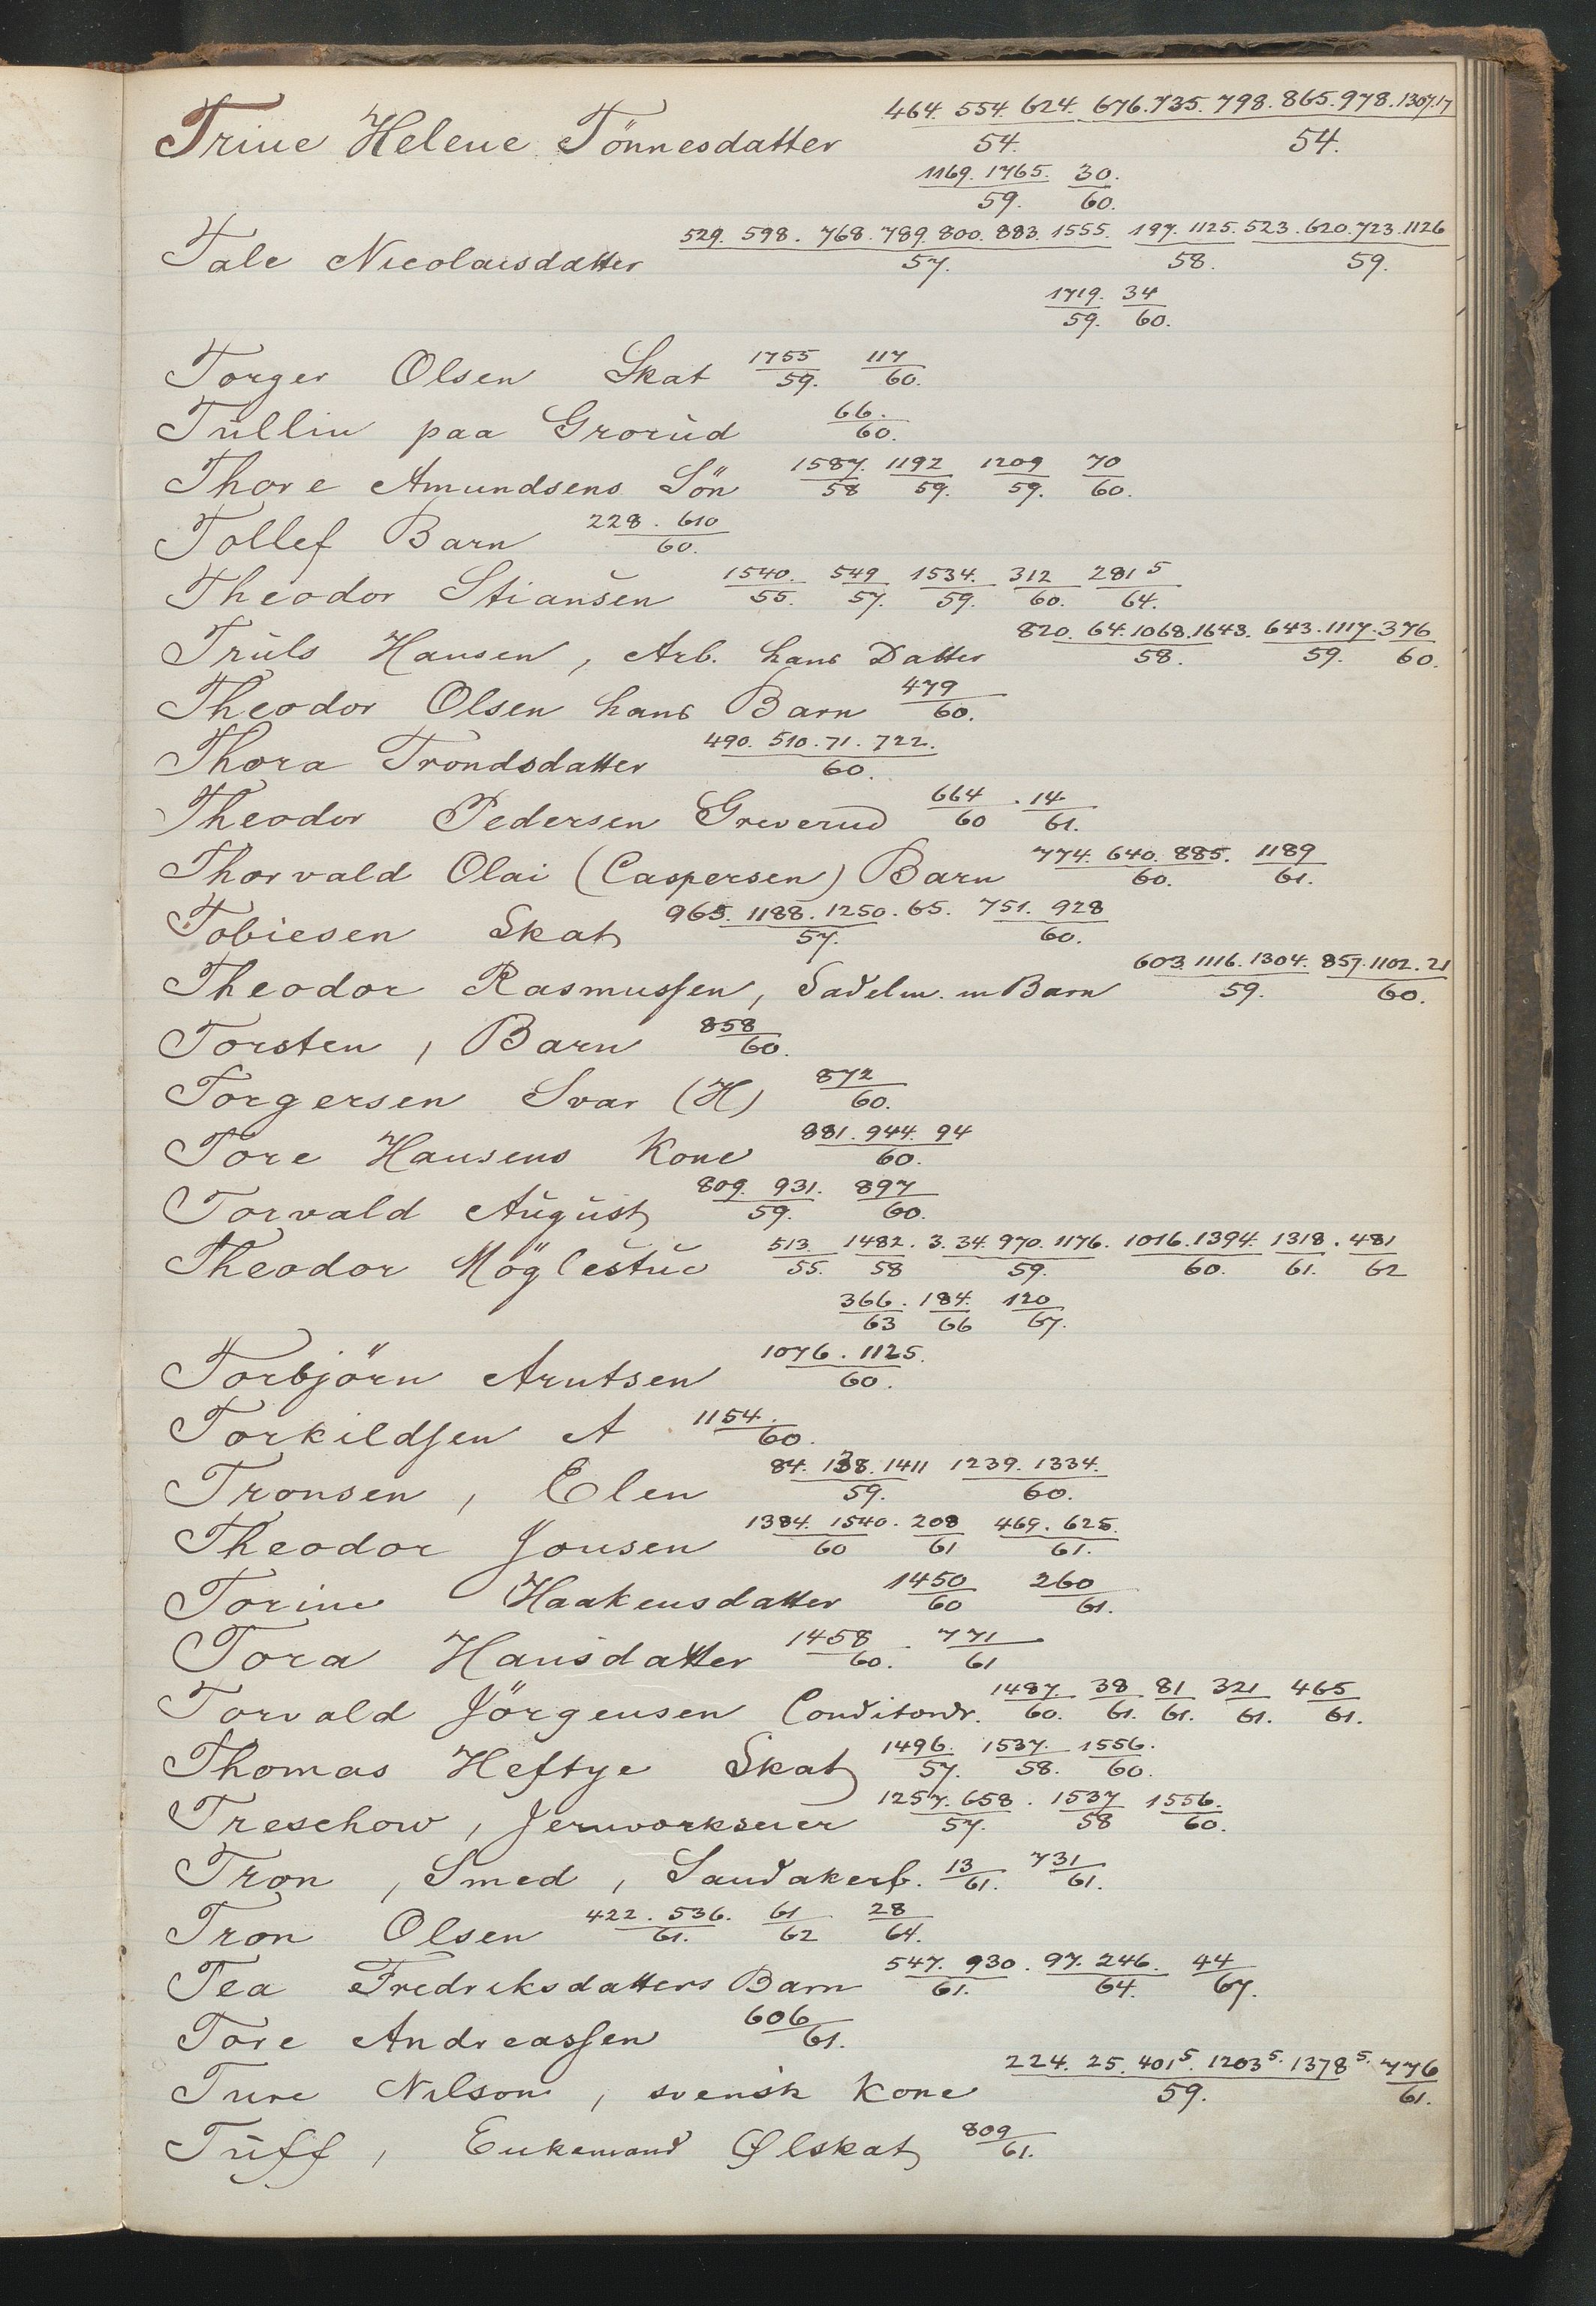 464. 554. 624. 676. 735. 798. 865. 978. 1307. 17
Trine Helene Tönnesdatter 54. 54.
1169. 1765. 30.
59. 60.
529. 598. 768. 789. 800. 883. 1555. 197. 1125. 523. 620. 723. 1126
Tale Nicolaisdatter 57. 58. 59.
1719. 34
59. 60.
Torger Olsen Skat 1755/59. 117/60.
Tullin paa Grorud 66./60.
Thore Amundsens Sön 1587./58 1192/59. 1209/59. 70/60.
Tollef Barn 228. 610/60.
Theodor Stiansen 1540./55. 549/57. 1534./59. 312/60. 281 5/64.
Truls Hansen, Arb. hans Datter 820. 64. 1068. 1643./58. 643. 1117./59. 376/60.
Theodor Olsen hans Barn 479/60.
Thora Trondsdatter 490. 510. 71. 722./60.
Theodor Pedersen Greverud 664/60 . 14/61.
Thorvald Olai (Caspersen) Barn 774. 640. 885./60. 1189/61.
Tobiesen Skat 965. 1188. 1250. 65./57. 751. 928/60.
Theodor Rasmussen, Sadelm. m Barn 603. 1116. 1304./59. 857. 1102. 21/60.
Torsten, Barn 858/60.
Torgersen Svar (H) 872/60.
Tore Hansens Kone 881. 944. 94/60.
Torvald August 809. 931./59. 897/60.
Theodor Möglestue 513./55. 1482./58 3. 34. 970. 1176./59. 1016. 1394./60. 1318./61. 481/62
366./63 184./66 120/67.
Torbjörn Arntsen 1076. 1125./60.
Torkildsen A 1154./60.
Tronsen, Elen 84. 138. 1411/59. 1239. 1334./60.
Theodor Jonsen 1384. 1540./60 208/61 469. 625./61.
Torine Haakensdatter 1450/60 260/61.
Tora Hansdatter 1458/60. 771/61
Torvald Jörgensen Conditordr. 1487./60. 38/61. 81/61. 321/61. 465/61.
Thomas Heftye Skat 1496./57. 1537./58. 1556./60.
Treschow, Jernværkseier 1257. 658./57. 1537/58 1556./60.
Tron, Smed, Sandakerf. 13/61. 731/61.
Tron Olsen 422. 536./61. 61/62 28/64.
Tea Fredriksdatters Barn 547. 930./61. 97. 246./64. 44/67.
Tore Andreassen 606/61.
Ture Nilson, svensk Kone 224. 25. 401 5. 1203 5. 1378 5./59. 776/61.
Tuff, Enkemand Ølskat 809/61.